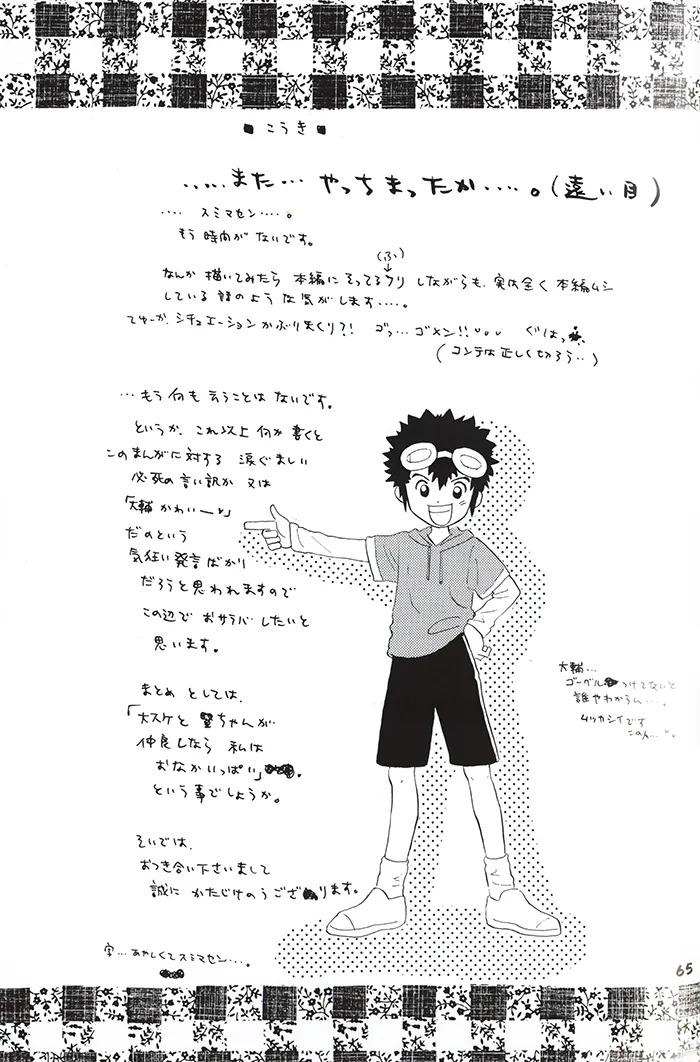 ■こうき■
‥‥‥また‥‥やっちまったか‥‥‥。(遠い目)
‥‥スミマセン‥‥。
もう時間がないです。
(ふ)
なんか描いてみたら本編にそってるフリしながらも、実は全く本編ムシ
している話のような気がします‥‥。
てゆーか、シチュエーションかぶりまくり?! ゴッ‥‥ゴメン!! ぐはっ
(コンテは正しく切ろう‥)
‥‥もう何も云うことはないです。
というか、これ以上何か書くと
このまんがに対する涙ぐましい
必死の言い訳か又は
「大輔かわいー♥」
だのという
気狂い発言ばかり
だろうと思われますので
この辺でおサラバしたいと
思います。
大輔‥‥
ゴーグルつけてないと
誰やわからん‥‥。
ムツカシイです
このん‥‥
まとめとしては、
「大スケと賢ちゃんが
仲良しなら私は
おなかいっぱい」。
という事でしょうか。
そいでは、
おつき合い下さいまして
誠にかたじけのうござります。
字‥‥あやしくてスミマセン‥‥。
65